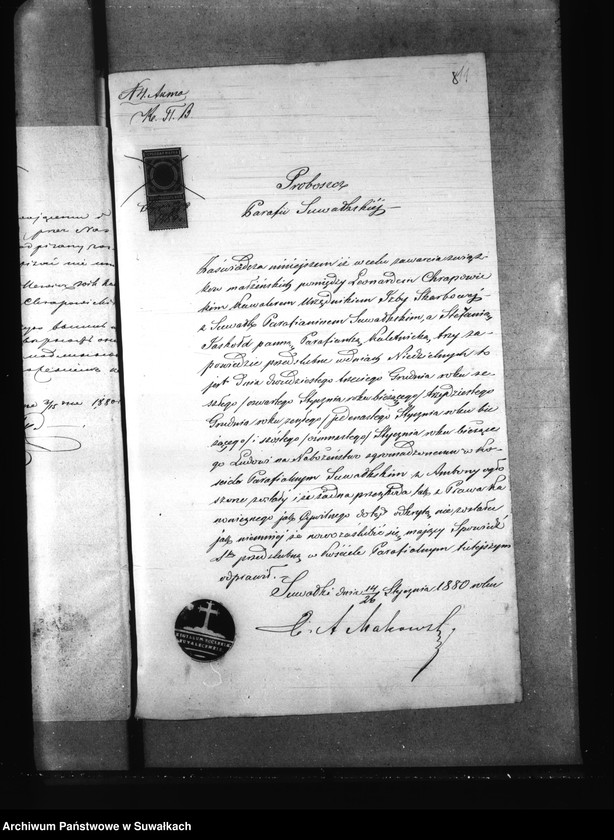 81
N 4. Акта
К. П. В.
Proboszcz
Parafii Suwałkskiéj
Zaświadcza niniejszem iż w celu zawarcia związ
ku małżeńskiego pomiędzy Leonardem Chrapowic
kim Kawalerem Urzędnikiem Izby Skarbowéj
z Suwałk Parafianinem Suwałkskim, a Stefanią
Jaskołd panną, Parafianką Kaletnicką, trzy za
powiedzie przedślubne w dniach Niedzielnych to
jest Dnia dwudziestego trzeciego Grudnia roku ze
szłego /czwartego Stycznia roku bieżącego/ trzydziestego
Grudnia roku zeszłego/ jedenastego Stycznia roku bie
żącego/ i szóstego /ośmnastego/ Stycznia roku bieżące
go Ludowi na Nabożeństwo zgromadzonemu w Ko
ściele Parafialnym Suwałkskim z Ambony ogło
szone zostały i że żadna przeszkoda tak z Prawa Ka
nonicznego jak Cywilnego dotąd odkrytą nie została
jak niemniéj że nowo zaślubić się mający Spowiedź
Stą przedślubną w Kościele Parafialnym tutejszym
odprawił.
Suwałki dnia 14/26 Stycznia 1880 roku
X. A Makowsk
przez
1880
Archiwum Państwowe w Suwałkach